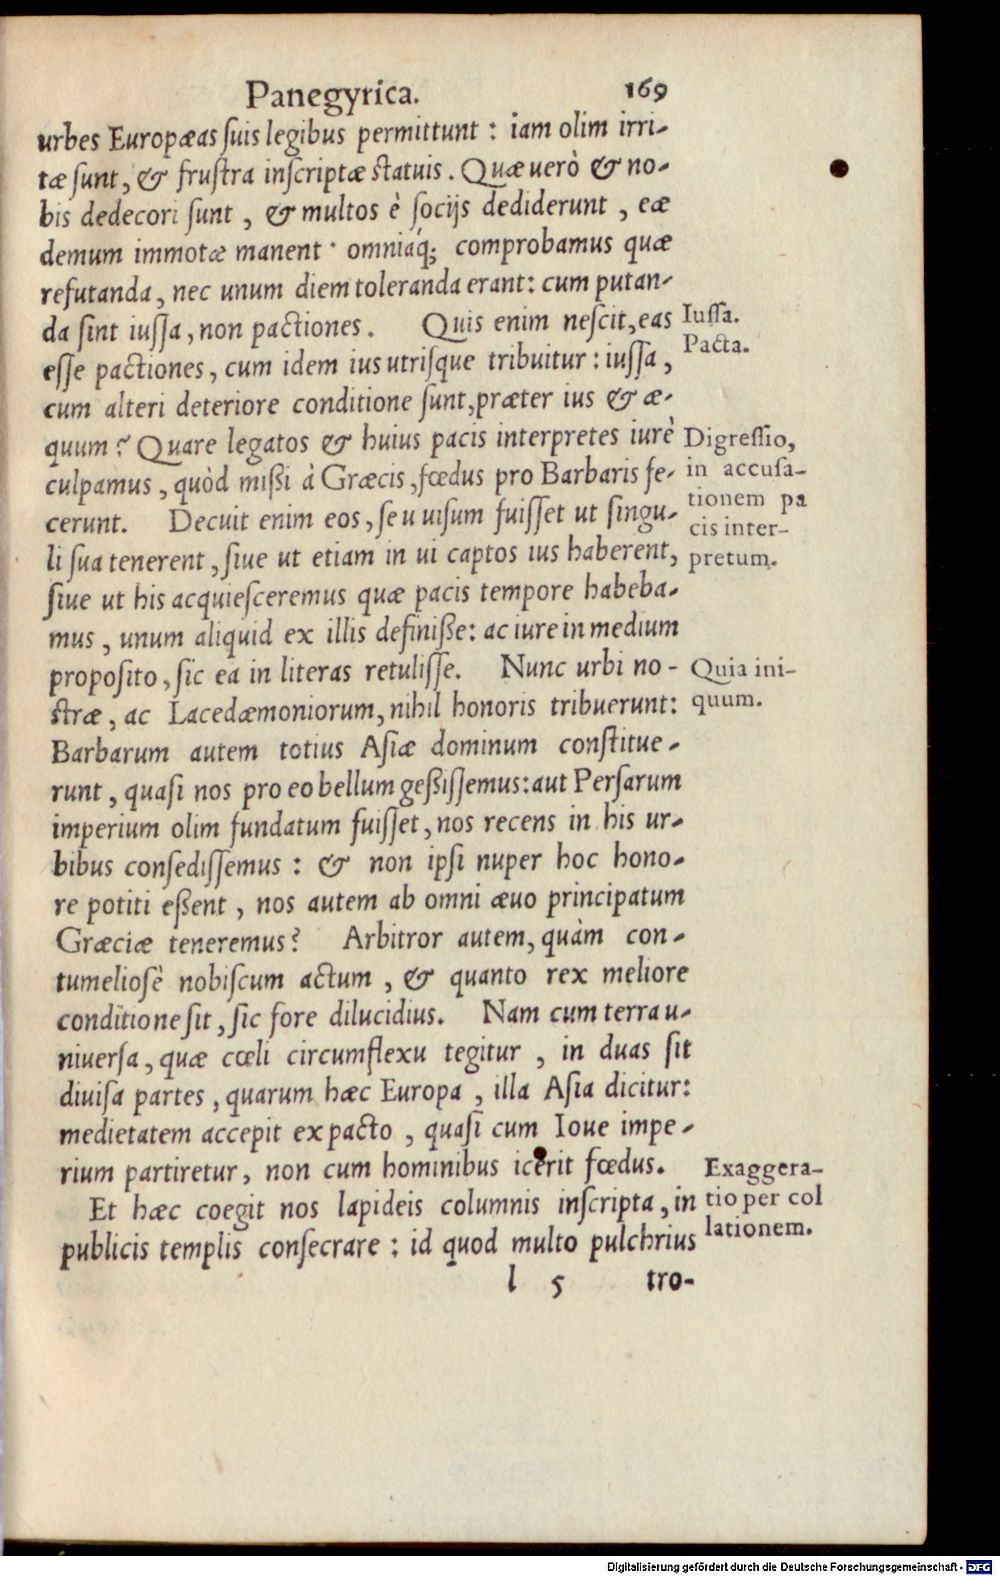 Panegyrica. 169
urbes Europæas suis legibus permittunt : iam olim irri-
tæ sunt, & frustra inscriptæ statuis. Quæ uerò & no-
bis dedecori sunt , & multos è socijs dediderunt , eæ
demum immotæ manent · omniaq́; comprobamus quæ
refutanda, nec unum diem toleranda erant: cum putan-
da sint iussa, non pactiones. Quis enim nescit, eas
Iussa.
esse pactiones, cum idem ius utrisque tribuitur : iussa,
Pacta.
cum alteri deteriore conditione sunt, præter ius & æ-
quum? Quare legatos & huius pacis interpretes iurè
Digressio,
culpamus, quòd mißi à Græcis, fœdus pro Barbaris fe-
in accusa-
cerunt. Decuit enim eos, seu uisum fuisset ut singu-
tionem pa
cis inter-
li sua tenerent, siue ut etiam in ui captos ius haberent,
pretum.
siue ut his acquiesceremus quæ pacis tempore habeba-
mus, unum aliquid ex illis definiße: ac iure in medium
proposito, sic ea in literas retulisse. Nunc urbi no-
Quia ini-
stræ, ac Lacedæmoniorum, nihil honoris tribuerunt:
quum.
Barbarum autem totius Asiæ dominum constitue-
runt, quasi nos pro eo bellum geßissemus: aut Persarum
imperium olim fundatum fuisset, nos recens in his ur-
bibus consedissemus : & non ipsi nuper hoc hono-
re potiti eßent, nos autem ab omni æuo principatum
Græciæ teneremus? Arbitror autem, quàm con-
tumeliosè nobiscum actum, & quanto rex meliore
conditione sit, sic fore dilucidius. Nam cum terra u-
niuersa, quæ cœli circumflexu tegitur, in duas sit
diuisa partes, quarum hæc Europa, illa Asia dicitur:
medietatem accepit ex pacto, quasi cum Ioue impe-
rium partiretur, non cum hominibus icerit fœdus.
Exaggera-
Et hæc coegit nos lapideis columnis inscripta, in
tio per col
publicis templis consecrare : id quod multo pulchrius
lationem.
l 5 tro-
Digitalisierung gefördert durch die Deutsche Forschungsgemeinschaft - DFG